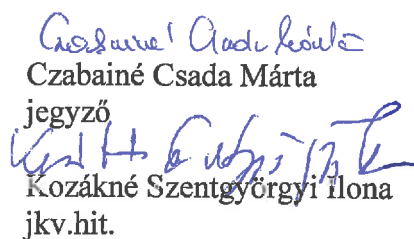 Czabainé Csada Márta
Czabainé Csada Márta
jegyző
Kozákné Szentgyörgyi Ilona
jkv.hit.